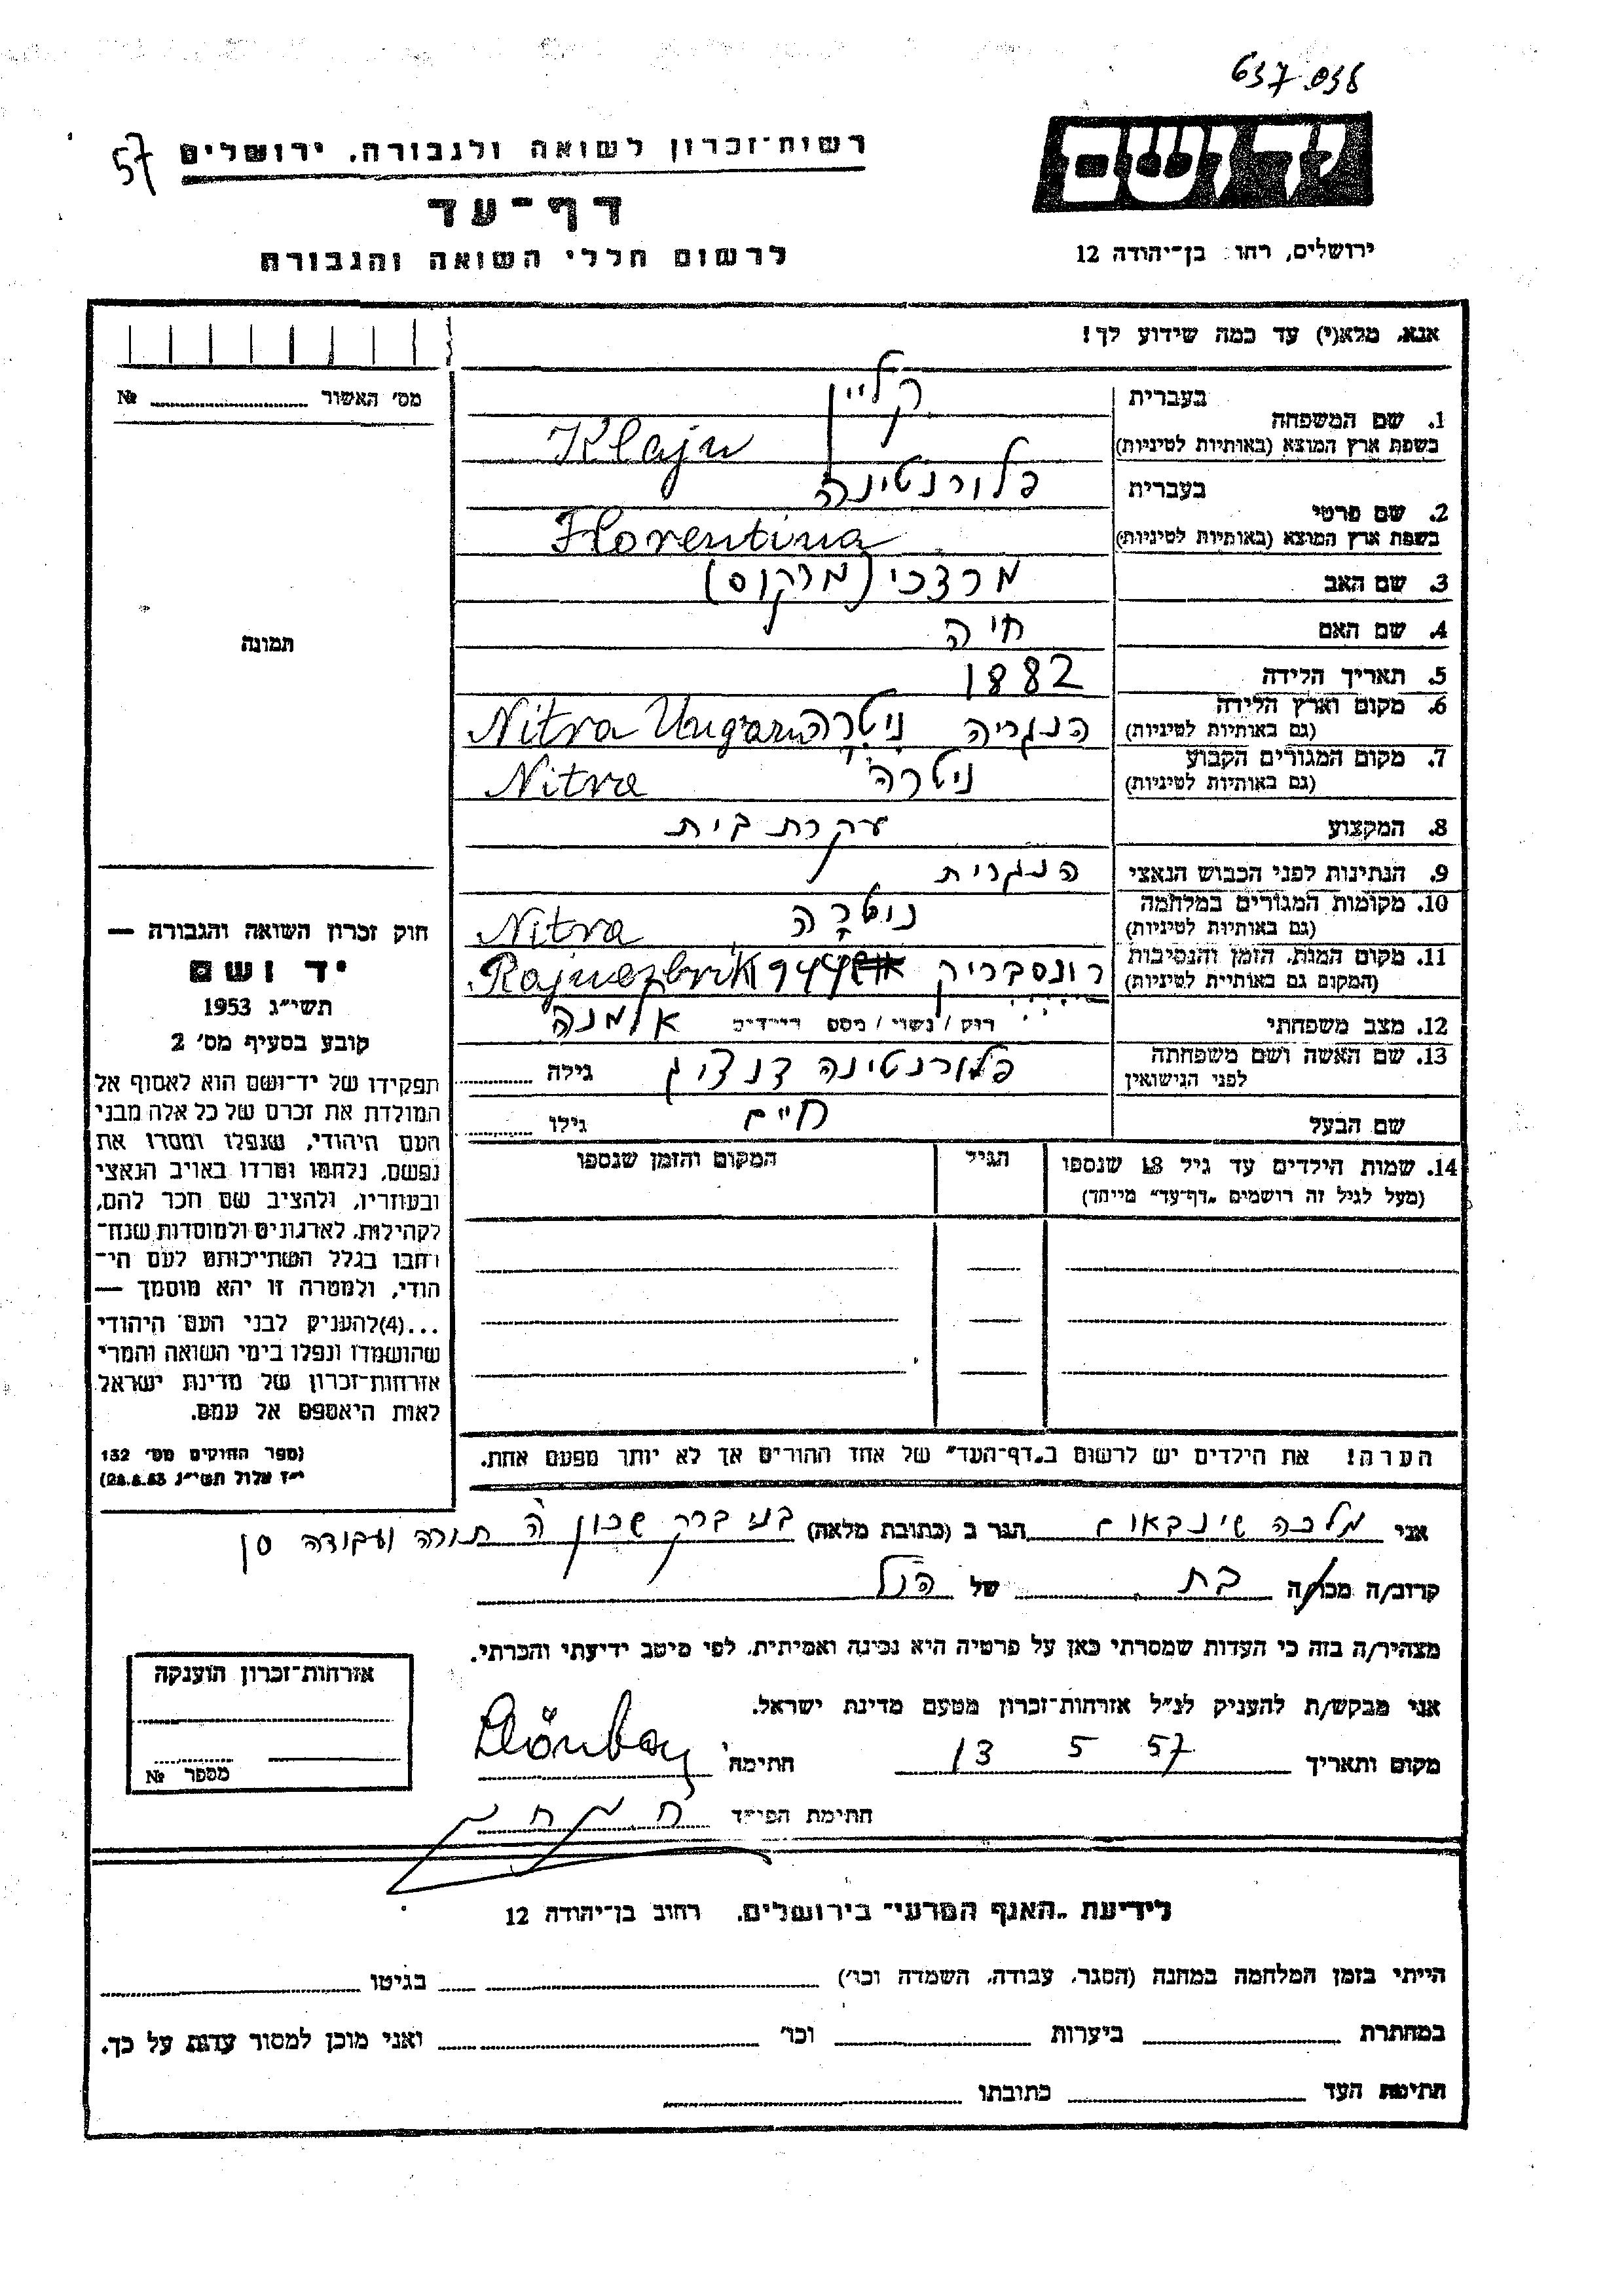 637.038
57
רשות־זכרון לשואה ולגבורה, ירושלים
יד ושם
דף־עד
לרשום חללי השואה והגבורה
ירושלים, רחו׳ בן־יהודה 12
אנא, מלא(י) עד כמה שידוע לך!
מס׳ האשור № 
תמונה
1. שם המשפחה
בעברית קליין
בשפת ארץ המוצא (באותיות לטיניות) Klajn
2. שם פרטי
בעברית פלורנטינה
בשפת ארץ המוצא (באותיות לטיניות) Florentina
3. שם האב מרצכי (מרקוס)
4. שם האם חיה
5. תאריך הלידה 1882
6. מקום וארץ הלידה (גם באותיות לטיניות) הנגריה ניטרה Nitra Ungarn
7. מקום המגורים הקבוע (גם באותיות לטיניות) ניטרה Nitra
8. המקצוע עקרת בית
9. הנתינות לפני הכבוש הנאצי הנגרית
10. מקומות המגורים במלחמה (גם באותיות לטיניות) ניטרה Nitra
11. מקום המות, הזמן והנסיבות (המקום גם באותיות לטיניות) רונסבריק 944
12. מצב משפחתי רוק / נשוי / מספר ילדים אלמנה
13. שם האשה ושם משפחתה לפני הנישואין פלורנטינה דנציג גילה
שם הבעל חיים גילו
14. שמות הילדים עד גיל 18 שנספו
(מעל לגיל זה רושמים „דף־עד״ מייחד)
הגיל
המקום והזמן שנספו
חוק זכרון השואה והגבורה —
יד ושם
תשי״ג 1953
קובע בסעיף מס׳ 2
תפקידו של יד־ושם הוא לאסוף אל
המולדת את זכרם של כל אלה מבני
העם היהודי, שנפלו ומסרו את
נפשם, נלחמו ומרדו באויב הנאצי
ובעוזריו, ולהציב שם וזכר להם,
לקהילות, לארגונים ולמוסדות שנח־
רבו בגלל השתייכותם לעם הי־
הודי, ולמטרה זו יהא מוסמך —
...(4)להעניק לבני העם היהודי
שהושמדו ונפלו בימי השואה והמרי
אזרחות־זכרון של מדינת ישראל
לאות היאספם אל עמם.
(ספר החוקים מס׳ 132
י״ז אלול תשי״ג 28.8.53)
הערה! את הילדים יש לרשום ב„דף־העד״ של אחד ההורים אך לא יותר מפעם אחת.
אני מלכה שינבאום הגר ב (כתובת מלאה) בני ברק שכון ה תורה ועבודה
קרוב/ה מכר/ה בת של הנל
מצהיר/ה בזה כי העדות שמסרתי כאן על פרטיה היא נכונה ואמיתית, לפי מיטב ידיעתי והכרתי.
אני מבקש/ת להעניק לנ״ל אזרחות־זכרון מטעם מדינת ישראל.
מקום ותאריך 13 5 57 חתימה
חתימת הפקיד
אזרחות־זכרון הוענקה
מספר №
לידיעת „האגף המדעי״ בירושלים, רחוב בן־יהודה 12
הייתי בזמן המלחמה במחנה (הסגר, עבודה, השמדה וכו׳) בגיטו
במחתרת ביערות וכו׳ ואני מוכן למסור עדות על כך.
חתימת העד כתובתו